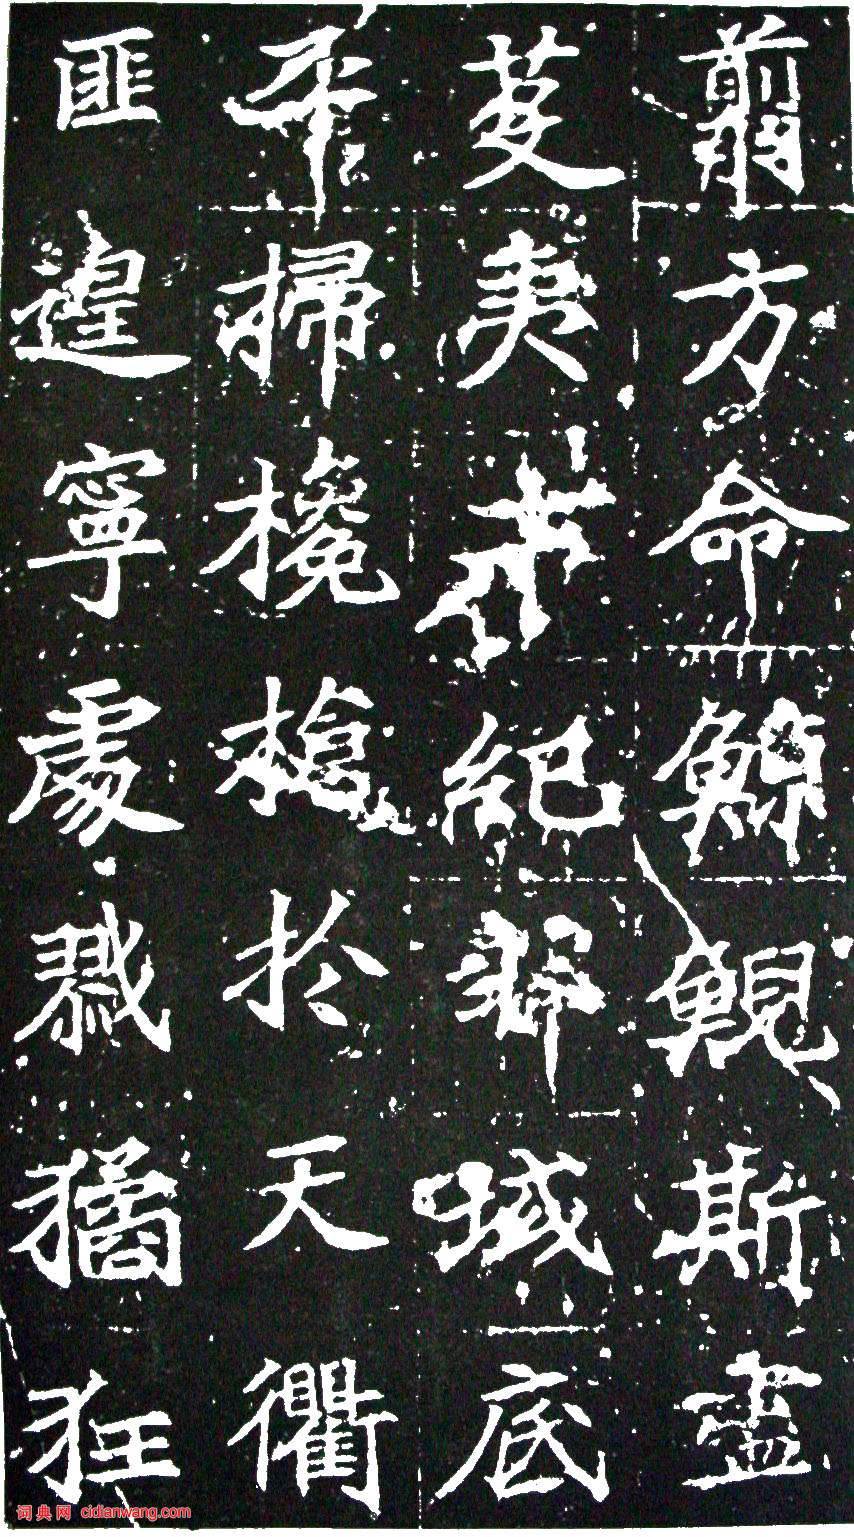 翦方命鯨鯢斯盡
芟夷 紀 域底
平掃欃槍於天衢
匪遑寧處戮猾狂
词典网 cidianwang.com